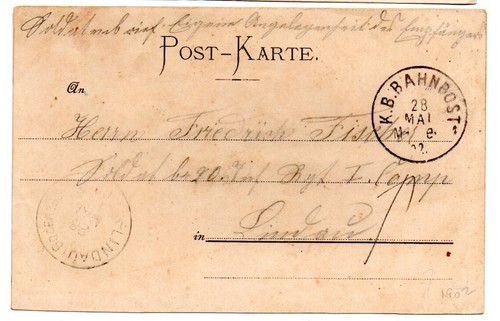 Soldatenbrief. Eigene Angelegenheit des Empfängers
POST-KARTE.
An
K.B. BAHNPOST
28
MAI
02
Herrn Friedrich Fischer
Soldat 20. Regt I. Comp
LINDAU
in Lindau
1902